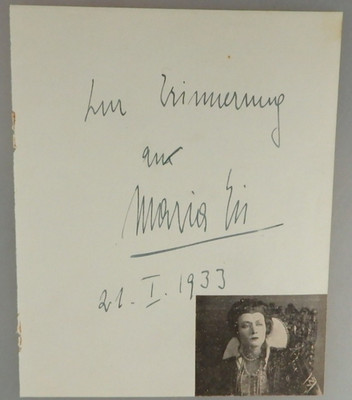 Zur Erinnerung
an
Maria Eis
21. I. 1933